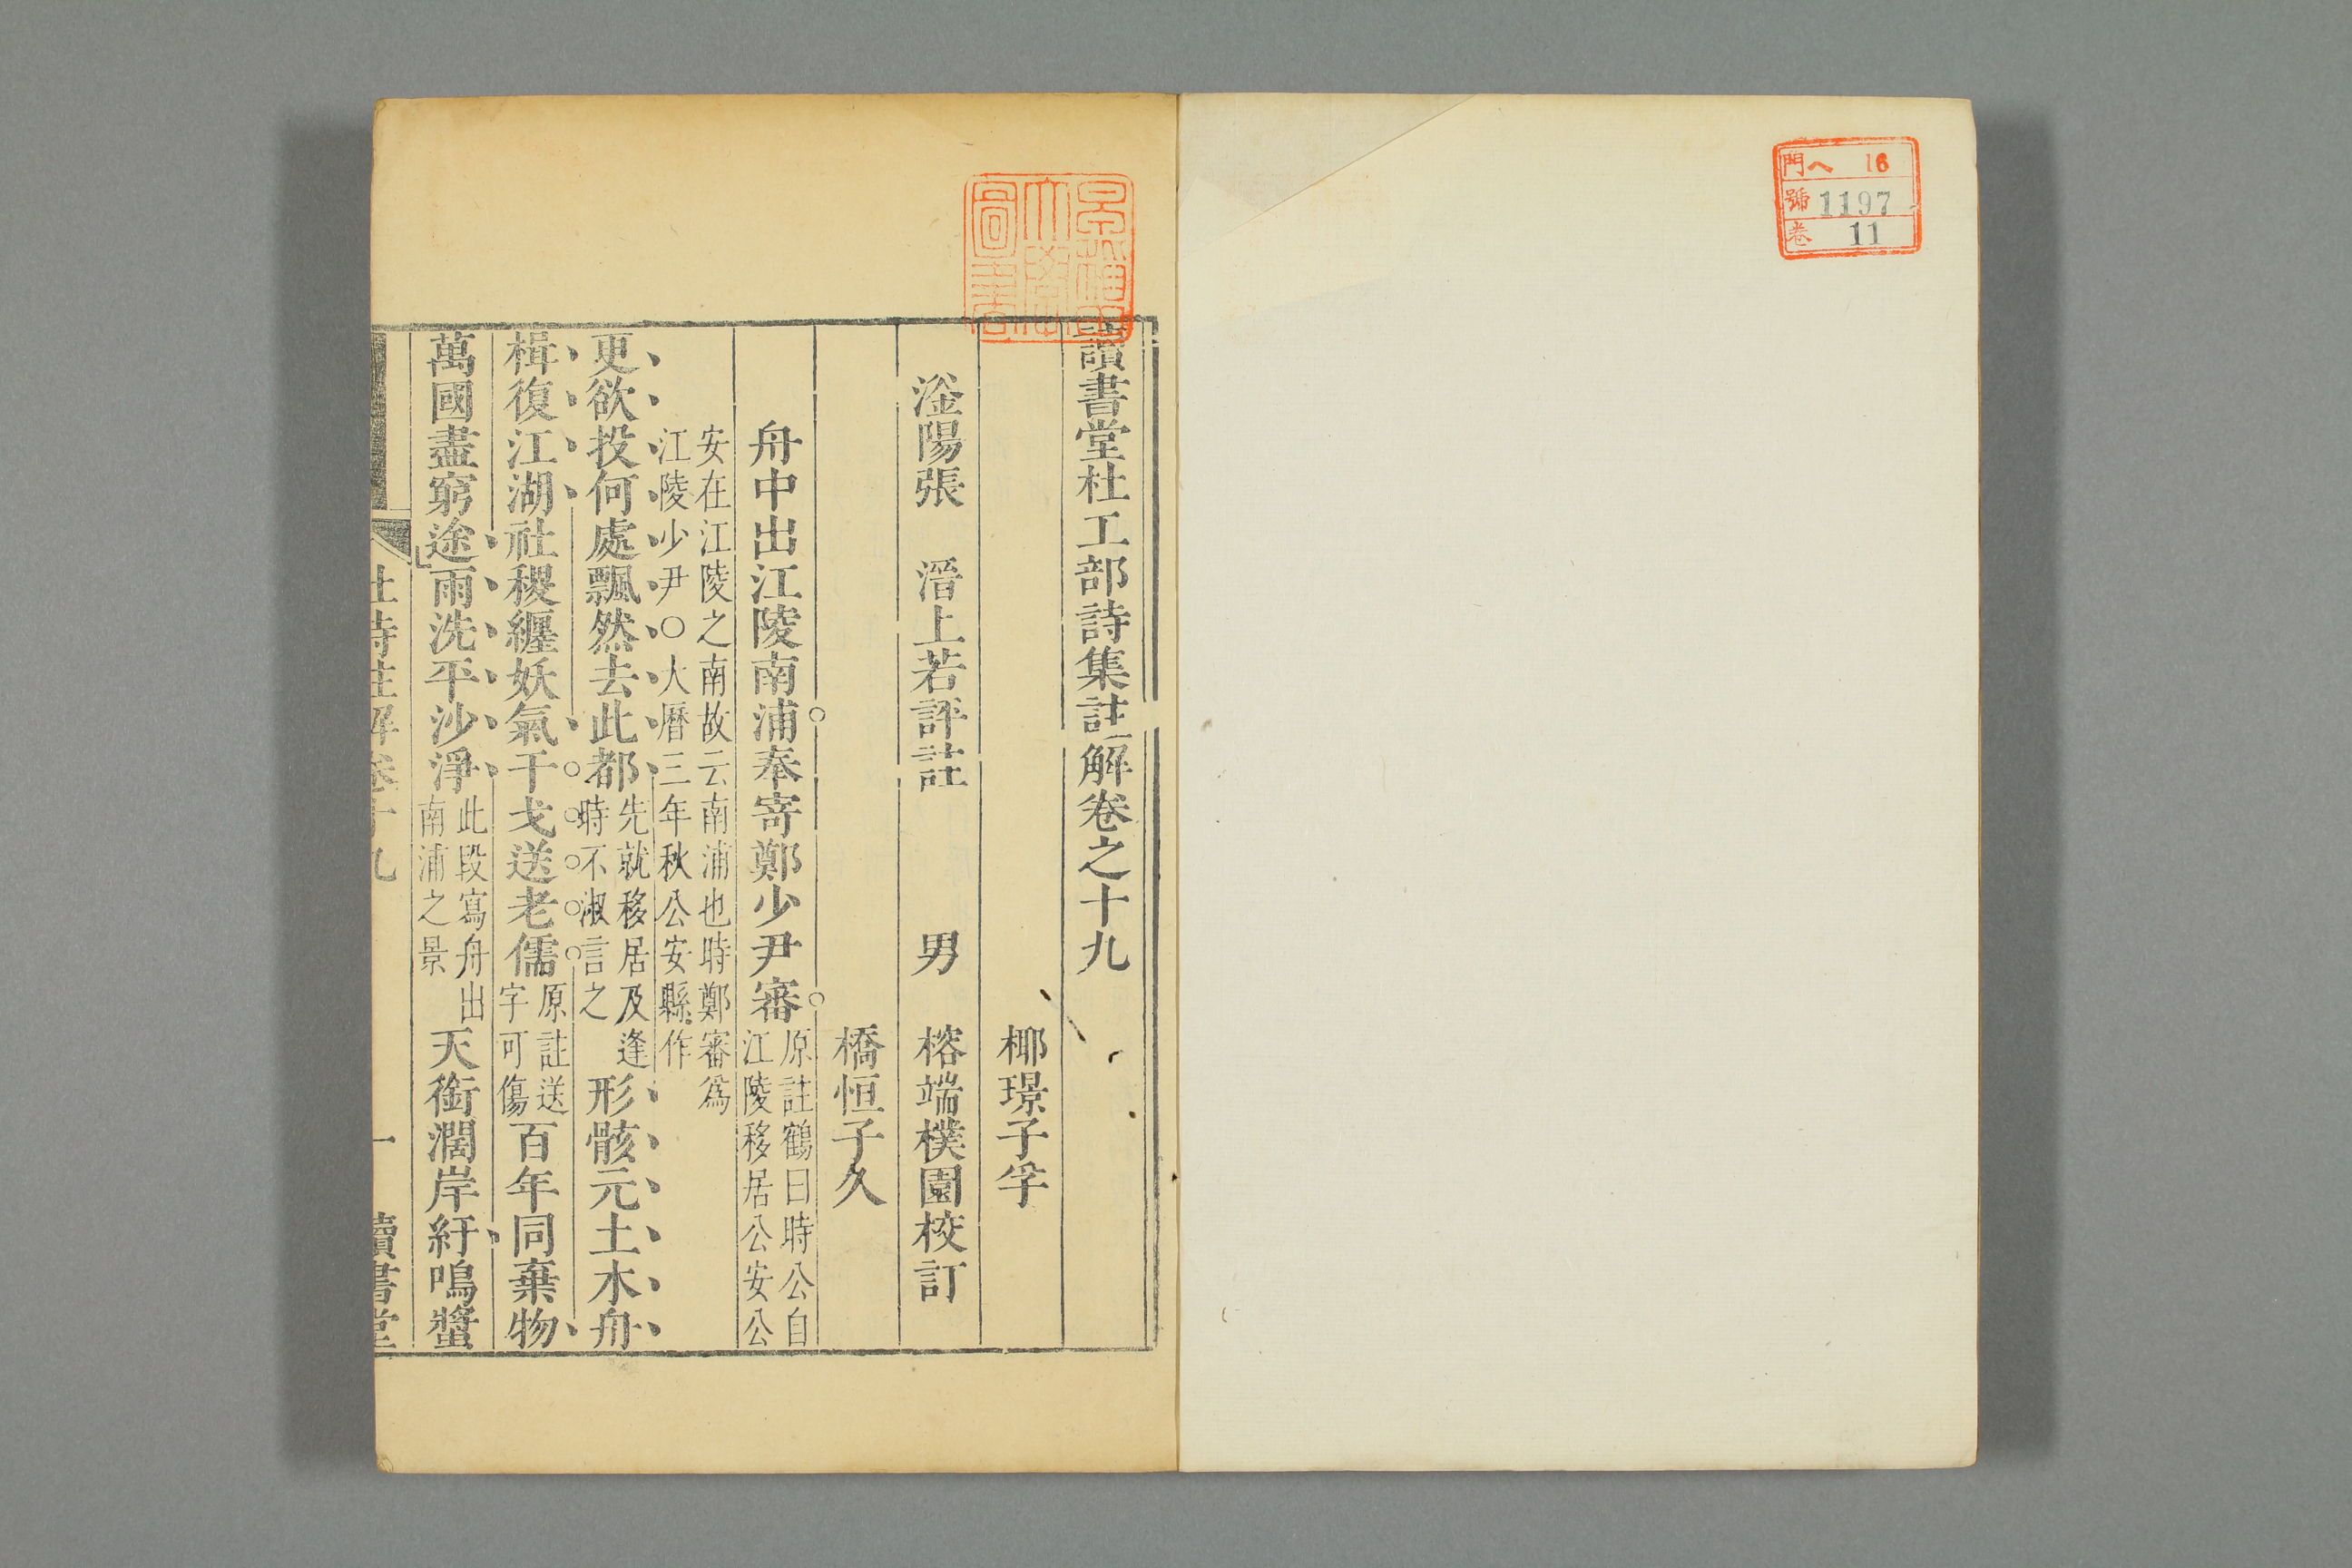 門 ヘ 16
號 1197
卷 11
早稲田
大學
圖書
讀書堂杜工部詩集註解卷之十九
椰璟子孚
滏陽張　溍上若評註　　男　榕端樸園校訂
橋恒子久
舟中出江陵南浦奉寄鄭少尹審原註鶴曰時公自江陵移居公安公
安在江陵之南故云南浦也時鄭審爲江陵少尹○大曆三年秋公安縣作
更欲投何處飄然去此都先就移居及逢時不淑言之形骸元土木舟
楫復江湖社稷纏妖氣干戈送老儒原註送字可傷百年同棄物
萬國盡窮途雨洗平沙淨此段寫舟出南浦之景天銜濶岸紆鳴螿
杜詩註解卷十九　一　讀書堂